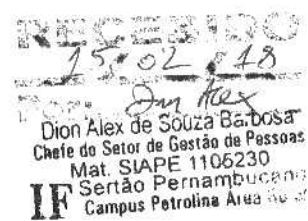 RECEBIDO
15, 02, 18
Por: Dion Alex
Dion Alex de Souza Barbosa
Chefe do Setor de Gestão de Pessoas
Mat. SIAPE 1105230
IF Sertão Pernambucano
Campus Petrolina Área